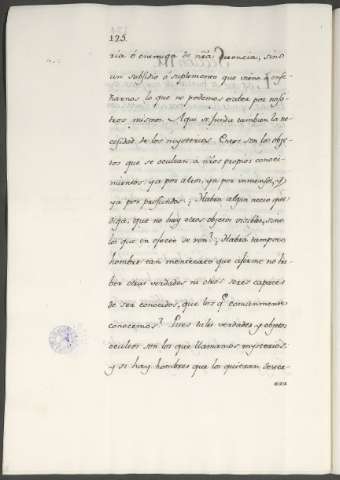 125.
ria ó enemiga de nr̃a Ciencia, sino
un subsidio ó suplemento que viene á ense-
ñarnos lo que no podemos saber por noso-
tros mismos. Aqui se funda tambien la ne-
cesidad de los mysterios. Estos son los obje-
tos que se ocultan á nr̃os propios conoci-
mientos: ya por altos, ya por inmensos, y
ya por profundos. ¿Habra algun necio que
diga, que no hay otros objetos visibles, sino
los que en efecto se ven? ¿Habrá tampoco
hombre tan mentecato que afirme no ha-
ber otras verdades ni otros seres capaces
de ser conocidos, que los q.e comunmente
conocemos? Pues tales verdades y objetos
ocultos son los que llamamos mysterios;
y si hay hombres que los quieran